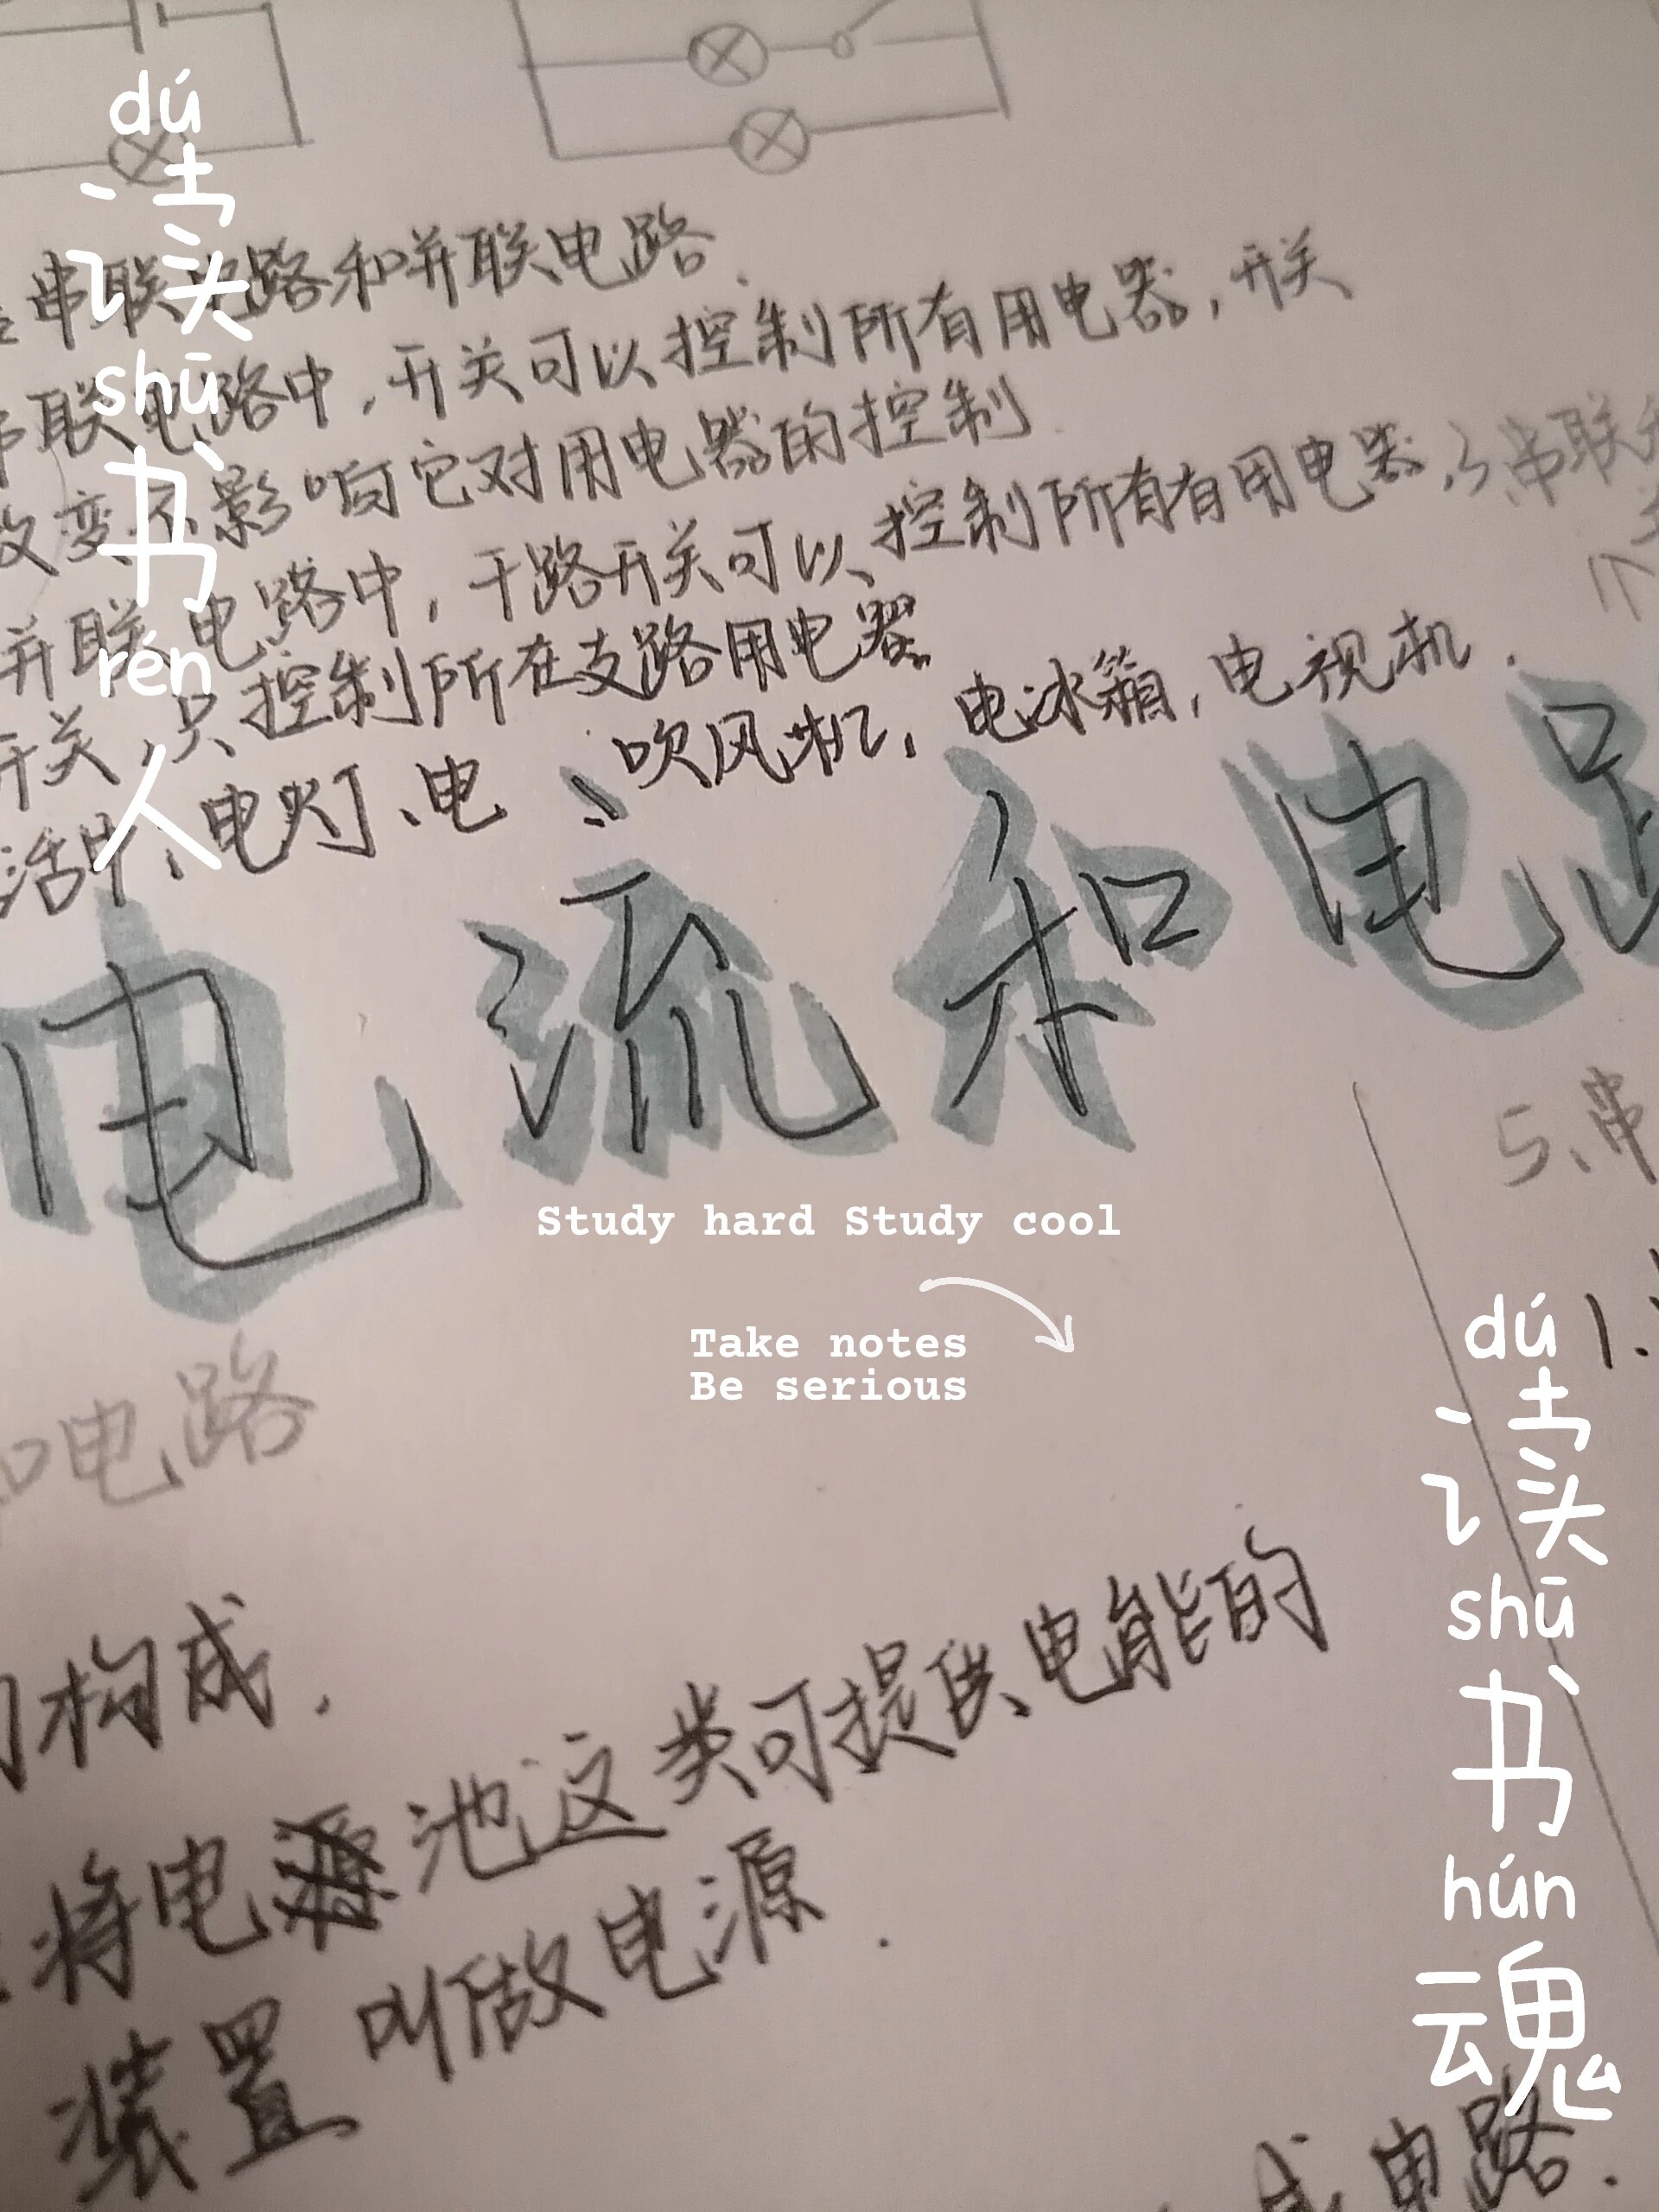 串联电路和并联电路.
串联电路中,开关可以控制所有用电器,开关
改变不影响它对用电器的控制.
并联电路中,干路开关可以控制所有有用电器,
3、串联
开关,只控制所在支路用电器
活中:电灯、电、吹风机,电冰箱,电视机.
电流和电路
5、串
1.
Study hard Study cool
Take notes
Be serious
和电路
构成.
将电池这类可提供电能的
装置叫做电源.
成电路.
dú
读
shū
书
rén
人
dú
读
shū
书
hún
魂